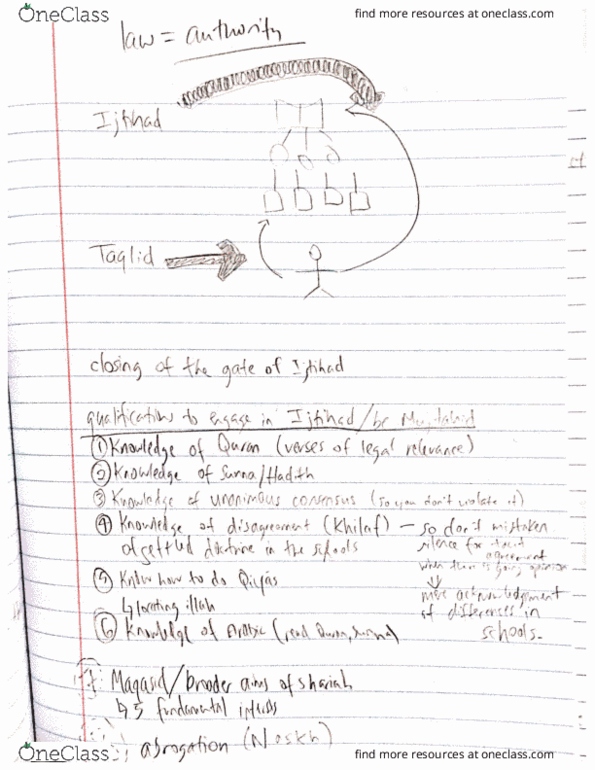 OneClass
find more resources at oneclass.com
law = authority
Ijtihad
of
Taqlid
closing of the gate of Ijtihad
qualifications to engage in Ijtihad/be Mujtahid
① Knowledge of Quran (verses of legal relevance)
② Knowledge of Sunna/Hadith
③ Knowledge of unanimous consensus (so you don't violate it)
④ Knowledge of disagreement (Khilaf) – so don't mistaken
of settled doctrine in the schools
silence for
agreement
when there is opinion
⑤ Know how to do Qiyas
↳ locating illah
↓ more acknowledgement
of differences in
schools.
⑥ Knowledge of Arabic (read Quran, Sunna)
7. Maqasid/broader aims of shariah
↳ 5 fundamental
abrogation (Naskh)
OneClass
find more resources at oneclass.com